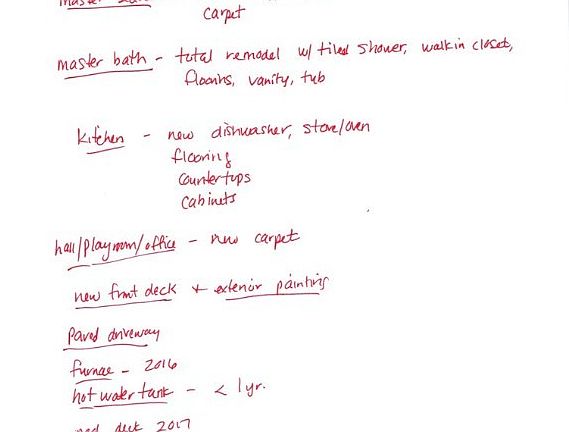 master
carpet
master bath - total remodel w/ tiled shower, walkin closet,
floors, vanity, tub
Kitchen - new dishwasher, stove/oven
flooring
countertops
cabinets
hall/playroom/office - new carpet
new front deck + exterior painting
Paved driveway
furnace - 2016
hot water tank - < 1 yr.
deck 2017